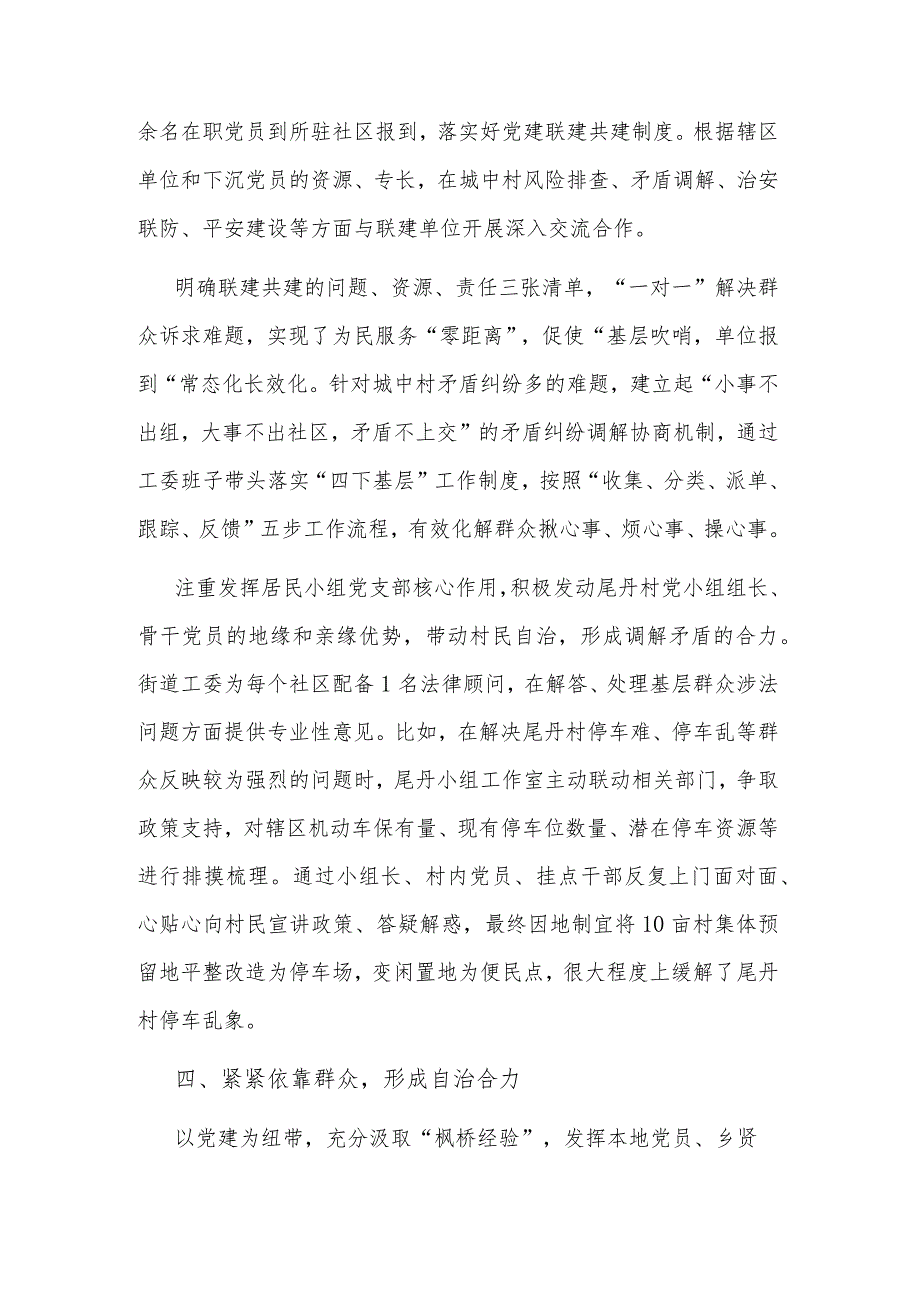 余名在职党员到所驻社区报到，落实好党建联建共建制度。根据辖区
单位和下沉党员的资源、专长，在城中村风险排查、矛盾调解、治安
联防、平安建设等方面与联建单位开展深入交流合作。
明确联建共建的问题、资源、责任三张清单，“一对一”解决群
众诉求难题，实现了为民服务“零距离”，促使“基层吹哨，单位报
到“常态化长效化。针对城中村矛盾纠纷多的难题，建立起“小事不
出组，大事不出社区，矛盾不上交”的矛盾纠纷调解协商机制，通过
工委班子带头落实“四下基层”工作制度，按照“收集、分类、派单、
跟踪、反馈”五步工作流程，有效化解群众揪心事、烦心事、操心事。
注重发挥居民小组党支部核心作用，积极发动尾丹村党小组组长、
骨干党员的地缘和亲缘优势，带动村民自治，形成调解矛盾的合力。
街道工委为每个社区配备1名法律顾问，在解答、处理基层群众涉法
问题方面提供专业性意见。比如，在解决尾丹村停车难、停车乱等群
众反映较为强烈的问题时，尾丹小组工作室主动联动相关部门，争取
政策支持，对辖区机动车保有量、现有停车位数量、潜在停车资源等
进行排摸梳理。通过小组长、村内党员、挂点干部反复上门面对面、
心贴心向村民宣讲政策、答疑解惑，最终因地制宜将10亩村集体预
留地平整改造为停车场，变闲置地为便民点，很大程度上缓解了尾丹
村停车乱象。
四、紧紧依靠群众，形成自治合力
以党建为纽带，充分汲取“枫桥经验”，发挥本地党员、乡贤